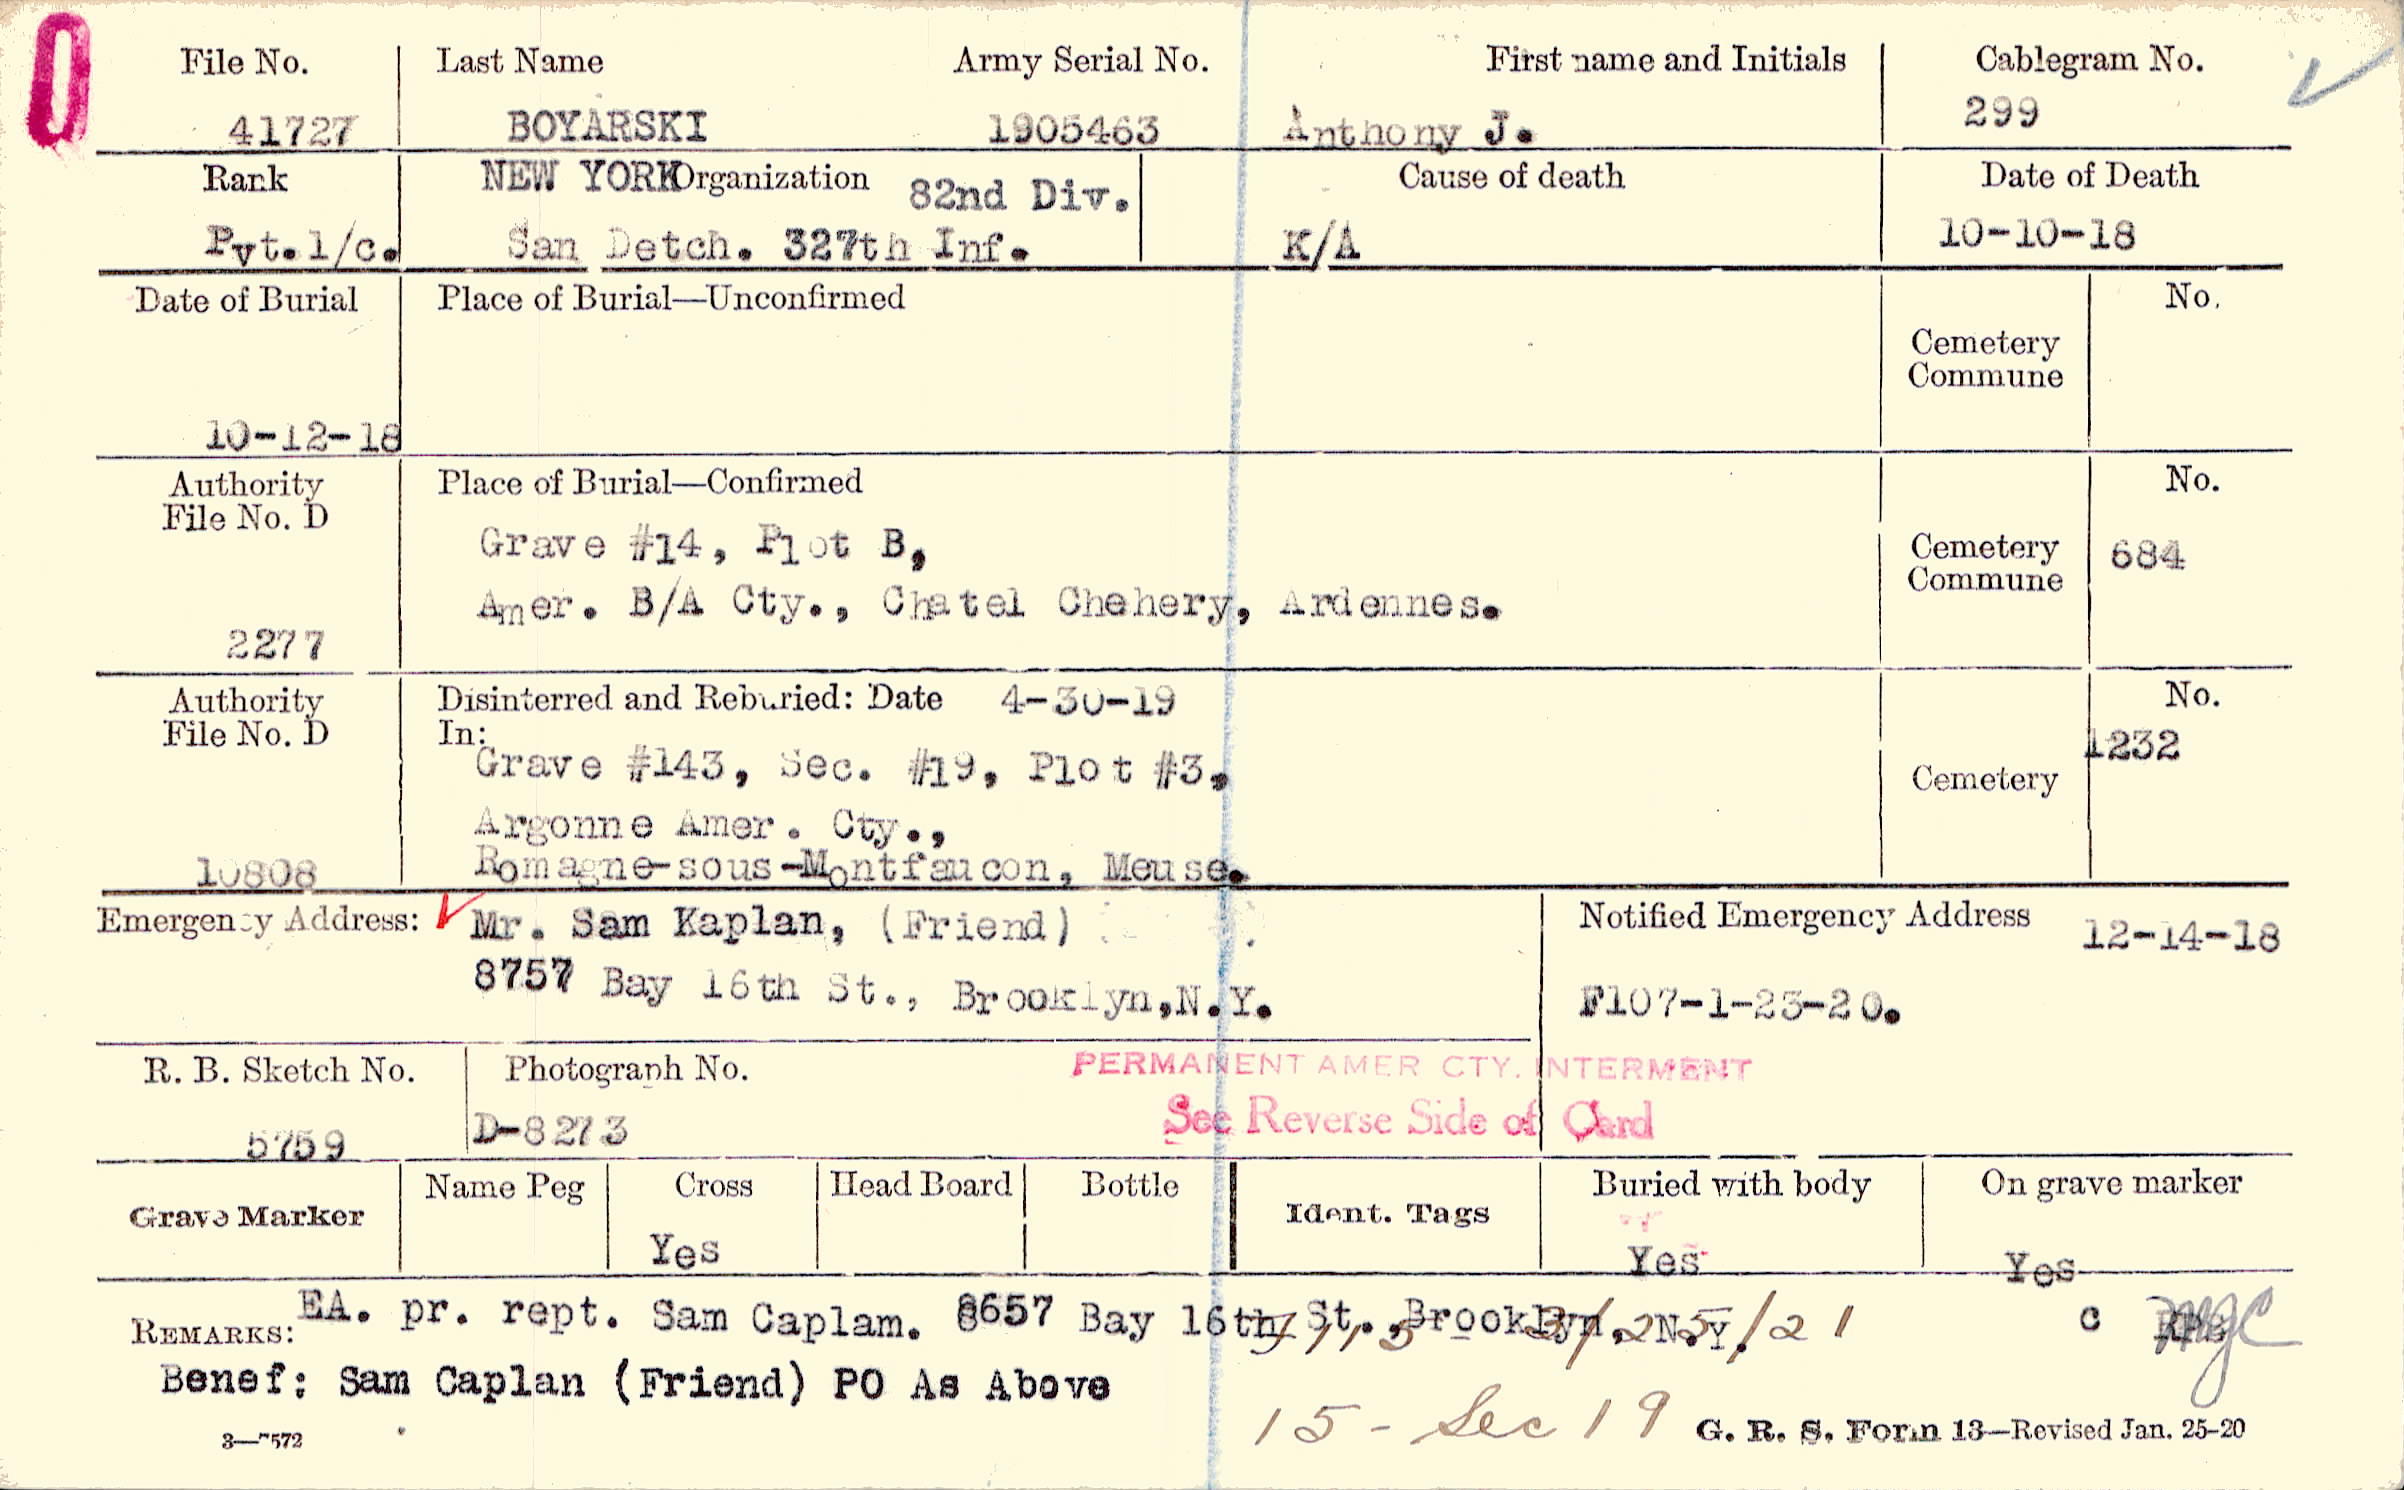 File No. Last Name Army Serial No. First name and Initials Cablegram No.
41727 BOYARSKI 1905463 Anthony J. 299
Rank NEW YORK Organization 82nd Div. Cause of death Date of Death
Pvt.1/c. San Detch. 327th Inf. K/A 10-10-18
Date of Burial Place of Burial—Unconfirmed No.
Cemetery
Commune
10-12-18
Authority Place of Burial—Confirmed No.
File No. D
Grave #14, Plot B, Cemetery 684
Commune
Amer. B/A Cty., Chatel Chehery, Ardennes.
2277
Authority Disinterred and Reburied: Date 4-30-19 No.
File No. D In: 1232
Grave #143, Sec. #19, Plot #3, Cemetery
Argonne Amer. Cty.,
10808 Romagne-sous-Montfaucon, Meuse.
Emergency Address: Mr. Sam Kaplan, (Friend) Notified Emergency Address 12-14-18
8757 Bay 16th St., Brooklyn,N.Y. F107-1-23-20.
R. B. Sketch No. Photograph No. PERMANENT AMER CTY. INTERMENT
5759 D-8273 See Reverse Side of Card
Grave Marker Name Peg Cross Head Board Bottle Ident. Tags Buried with body On grave marker
Yes Yes Yes
REMARKS: EA. pr. rept. Sam Caplam. 8657 Bay 16th St., Brooklyn, N.Y. 3/25/21 C
Benef: Sam Caplan (Friend) PO As Above
15 - Sec 19
3—7572 G. R. S. Form 13—Revised Jan. 25-20